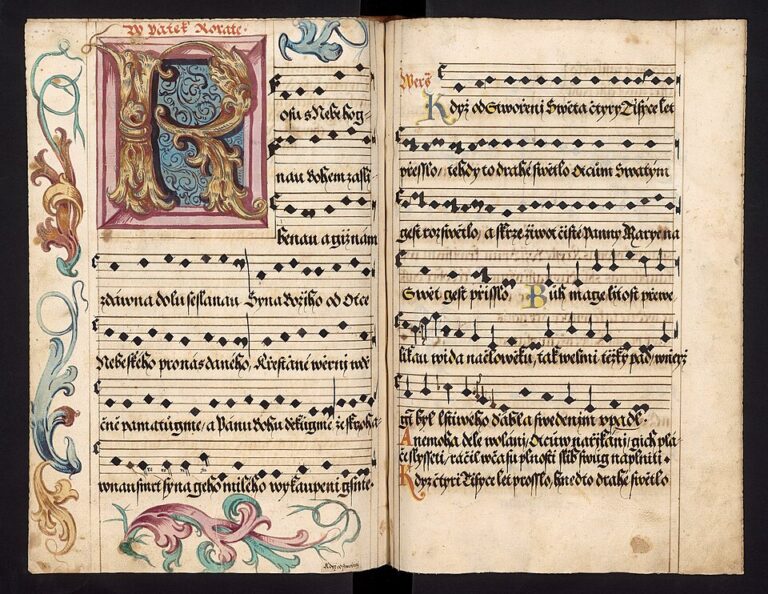 W pátek Rorate.
R
osu s Nebe hog-
nau Bohem zasli-
benau a giž nám
zdáwna dolu seslanau Syna Božiho od Otce
Nebeského pro nás daného, Křestiané wěrni wdě
čně pamatůgme, a Pánu Bohu děkugme že skrz ha-
wnau smrt syna geho milého wykaupeni gsme.
Wers̃
Když od Stwořeni Swěta čtyry Tisyce let
přesslo, tehdy to drahé swětlo Otcům Swatým
gest rozswětlo, a skrze žiwot čisté Panny Marye na
Swět gest přisslo. Buh mage litost přewe
likau wida načlowěku, tak welmi těžký pád, w nieyž
gest byl lstiwého dábla swedenjm vpadl.
A nemoha dele wolánj, Otcůw nařjkánj, gich plá-
če slysseti, ráčil w času plnosti slib swůg naplniti.
Když čtyri Tisyce let prosslo, hned to drahé swětlo